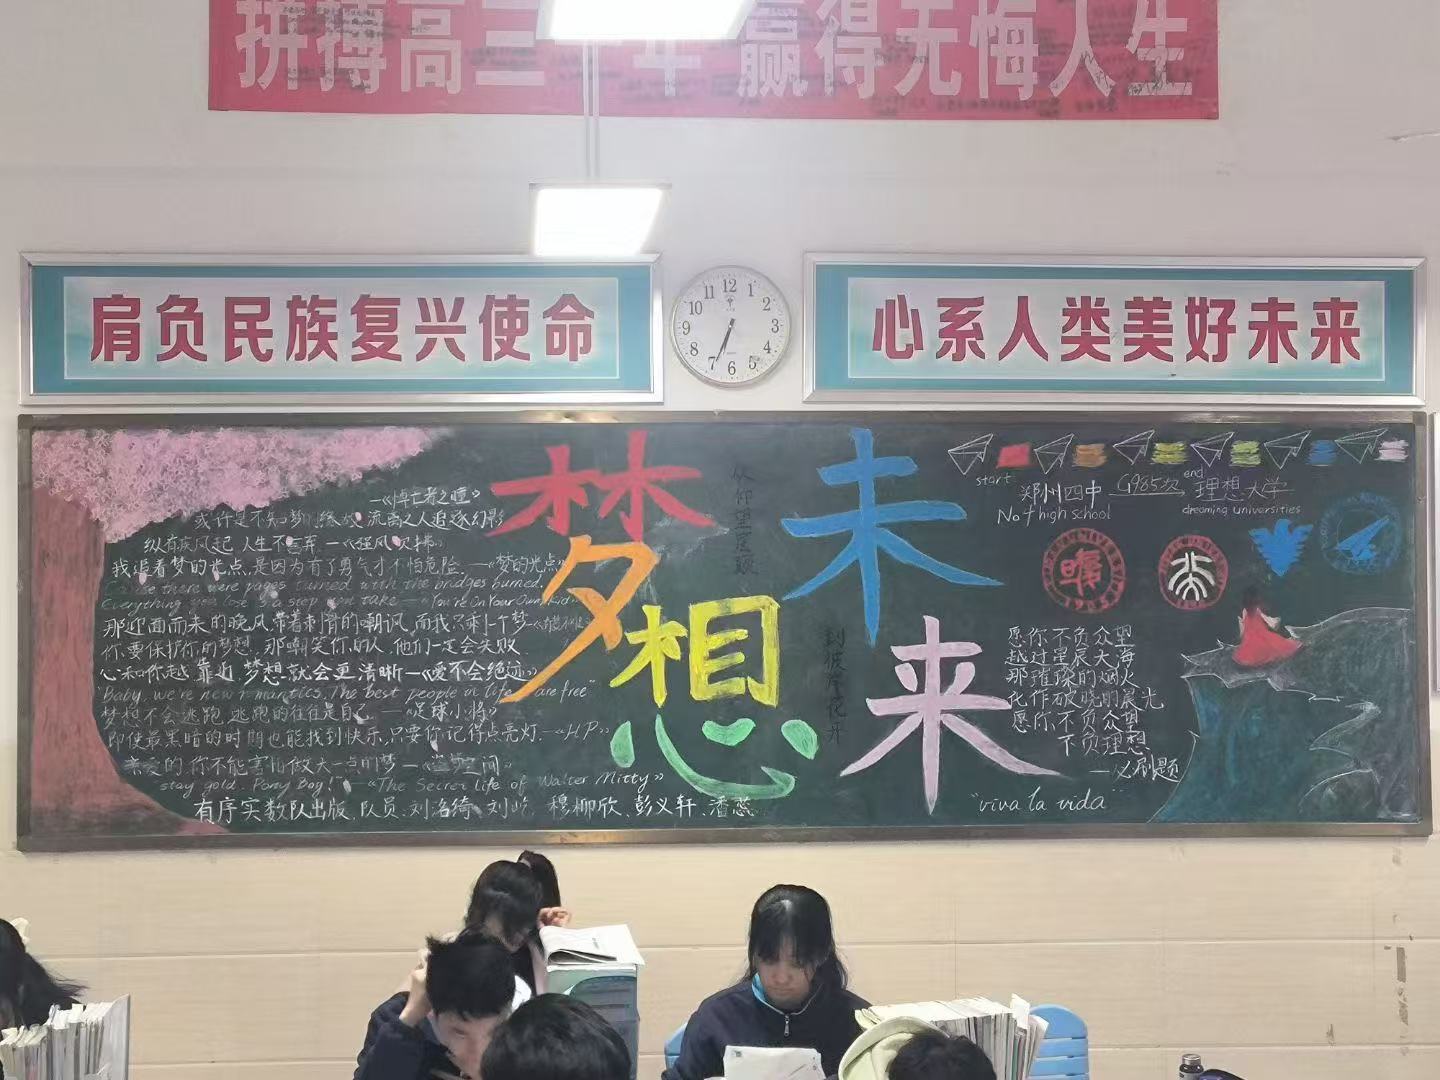 拼搏高三一年 赢得无悔人生
肩负民族复兴使命
12 1 2 3 4 5 6 7 8 9 10 11
心系人类美好未来
梦想
未来
从仰望星辰
到彼岸花开
纵有疾风起 人生不言弃 —《强风吹拂》
我追着梦的光点,是因为有了勇气才不怕危险. —《梦的光点》
'Cause there were pages turned with the bridges burned.
Everything you lose is a step you take —《You're On Your Own, Kid》
那迎面而来的晚风带着刺骨的嘲讽,而我只剩个梦
你要保护你的梦想,那嘲笑你的人,他们一定会失败.
心和你越靠近,梦想就会更清晰—《爱不会绝迹》
"Baby, we're new romantics, The best people in life are free"
梦想不会逃跑,逃跑的往往是自己.—《足球小将》
即使最黑暗的时期也能找到快乐,只要你记得点亮灯.—《HP》
亲爱的,你不能害怕做大一点的梦—《盗梦空间》
stay gold. Pony Boy! —《The Secret life of Walter Mitty》
有序实数队出版,队员:刘洛绮、刘屹、穆柳欣、彭义轩、潘蕊
start
end
郑州四中 G985次 理想大学
No.4 high school
dreaming universities
愿你不负众望
越过星辰大海
那璀璨的烟火
化作破晓的晨光
愿你不负众望
不负理想
—必刷题
"viva la vida"